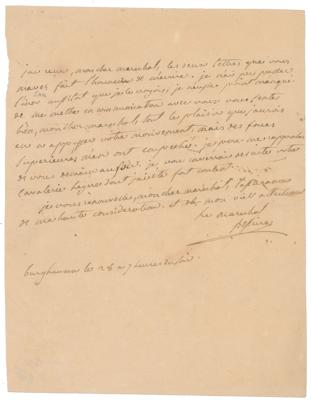 j'ai reçu, mon cher maréchal, les deux lettres que vous
m'avez fait l'honneur de m'écrire. je n'ai pu passer
l'inn aussitôt que je le croyais, je
de me mettre en communication avec vous. vous sentez
bien, mon cher maréchal, tout le plaisir que j'aurais
eu a appuyer votre mouvement, mais des forces
supérieures m'en ont empêché. je vous
de vous demain au soir. je vous renverrai de suite votre
cavalerie légère dont j'ai été fort content.
je vous renouvelle, mon cher maréchal, l'assurance
de ma haute considération et de mon attachement
le maréchal
Bessières
burghausen le 28 a 7 heures du soir.